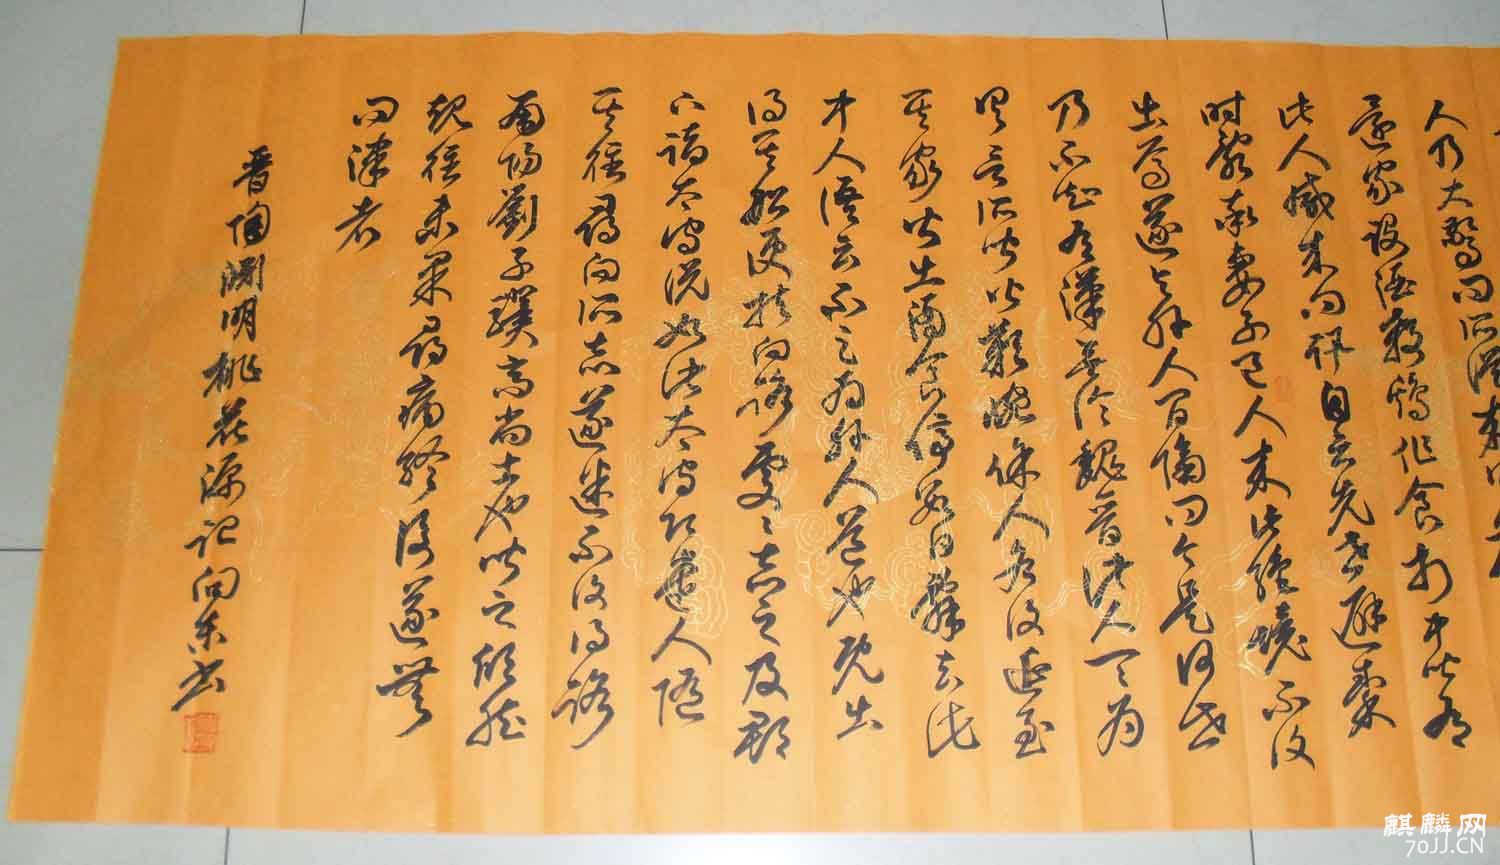 人乃大驚問所從來具
還家設酒殺雞作食村中聞有
此人咸來問訊自云先世避秦
时亂率妻子邑人來此絕境不復
出焉遂與外人間隔問今是何世
乃不知有漢無論魏晉此人一一為
具言所聞皆歎惋餘人各復延至
其家皆出酒食停數日辭去此
中人語云不足為外人道也既出
得其船便扶向路處〻志之及郡
下詣太守說如此太守即遣人隨
其往尋向所志遂迷不復得路
南陽劉子驥高尚士也聞之欣然
規往未果尋病終後遂無
問津者
晉陶淵明桃花源記向東書
麒麟网
70JJ.CN